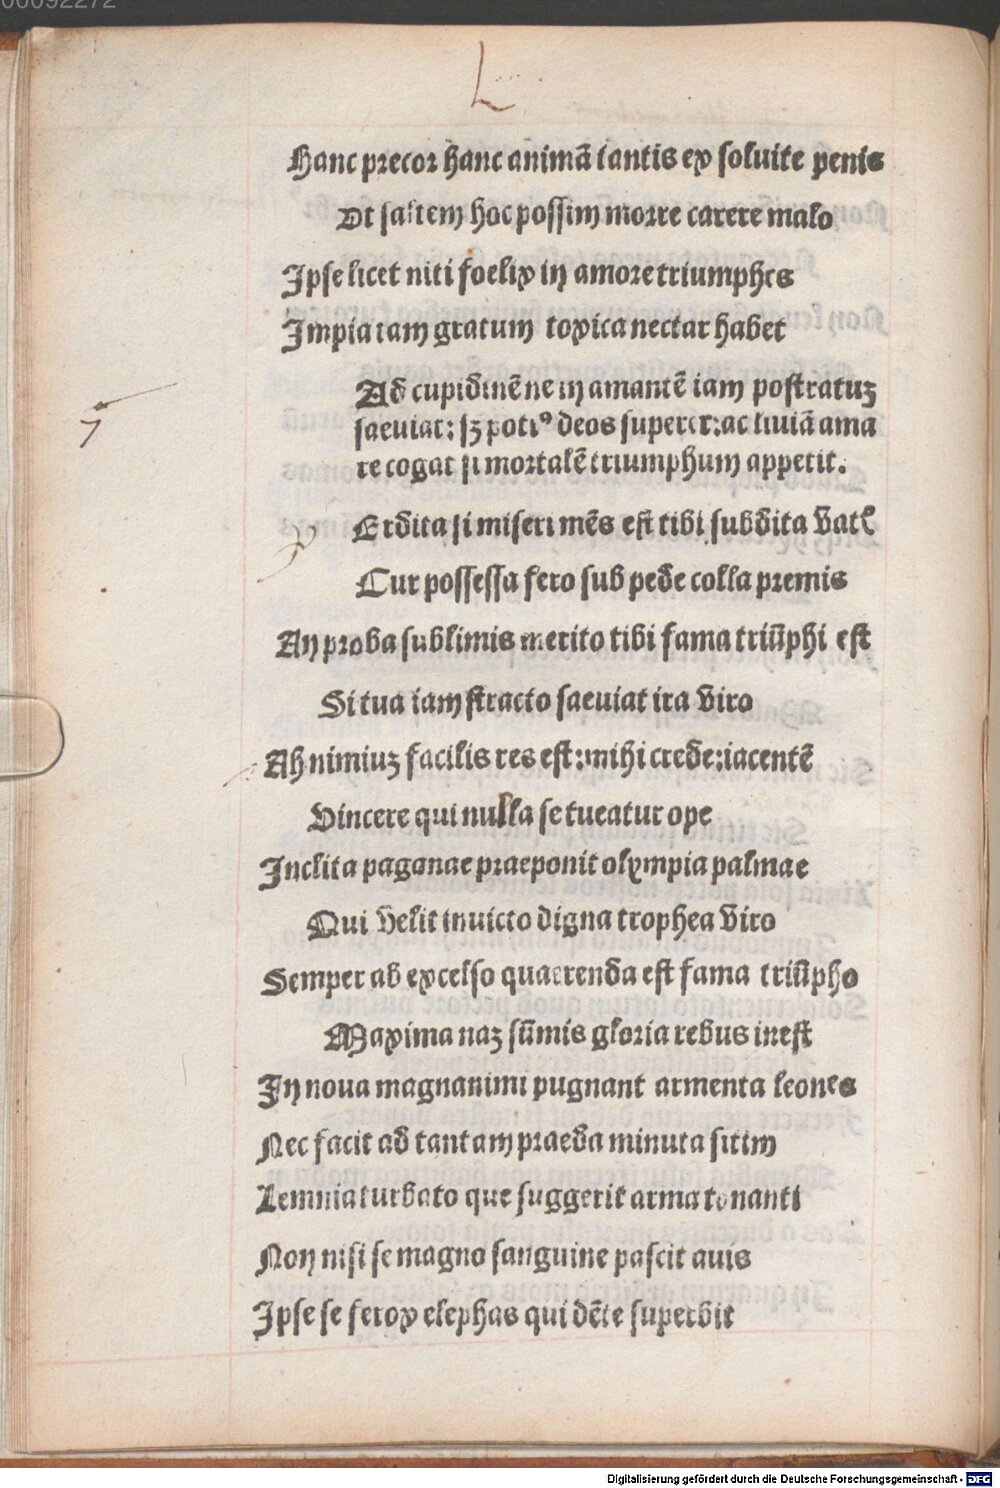 00092272
L
Hanc precor hanc animã tantis ex soluite penis
Vt saltem hoc possim morte carere malo
Ipse licet niti foelix in amore triumphes
Impia tam gratum toxica nectar habet
7
Ad cupidinẽ ne in amantẽ iam postratuʒ
saeuiat: sʒ potiꝰ deos superet: ac liuiã ama
re cogat si mortalẽ triumphum appetit.
Erdita si miseri mẽs est tibi subdita vat
Cur possessa fero sub pede colla premis
An proba sublimis merito tibi fama triũphi est
Si tua iam stracto saeuiat ira viro
Ah nimiuʒ facilis res est: mihi crede: iacentẽ
Vincere qui nulla se tueatur ope
Inclita paganae praeponit olympia palmae
Qui velit inuicto digna trophea viro
Semper ab excelso quaerenda est fama triũpho
Maxima naʒ sũmis gloria rebus inest
In noua magnanimi pugnant armenta leones
Nec facit ad tantam praeda minuta sitim
Lemnia turbato que suggerit arma tonanti
Non nisi se magno sanguine pascit auis
Ipse se ferox elephas qui dẽte superbit
Digitalisierung gefördert durch die Deutsche Forschungsgemeinschaft - DFG